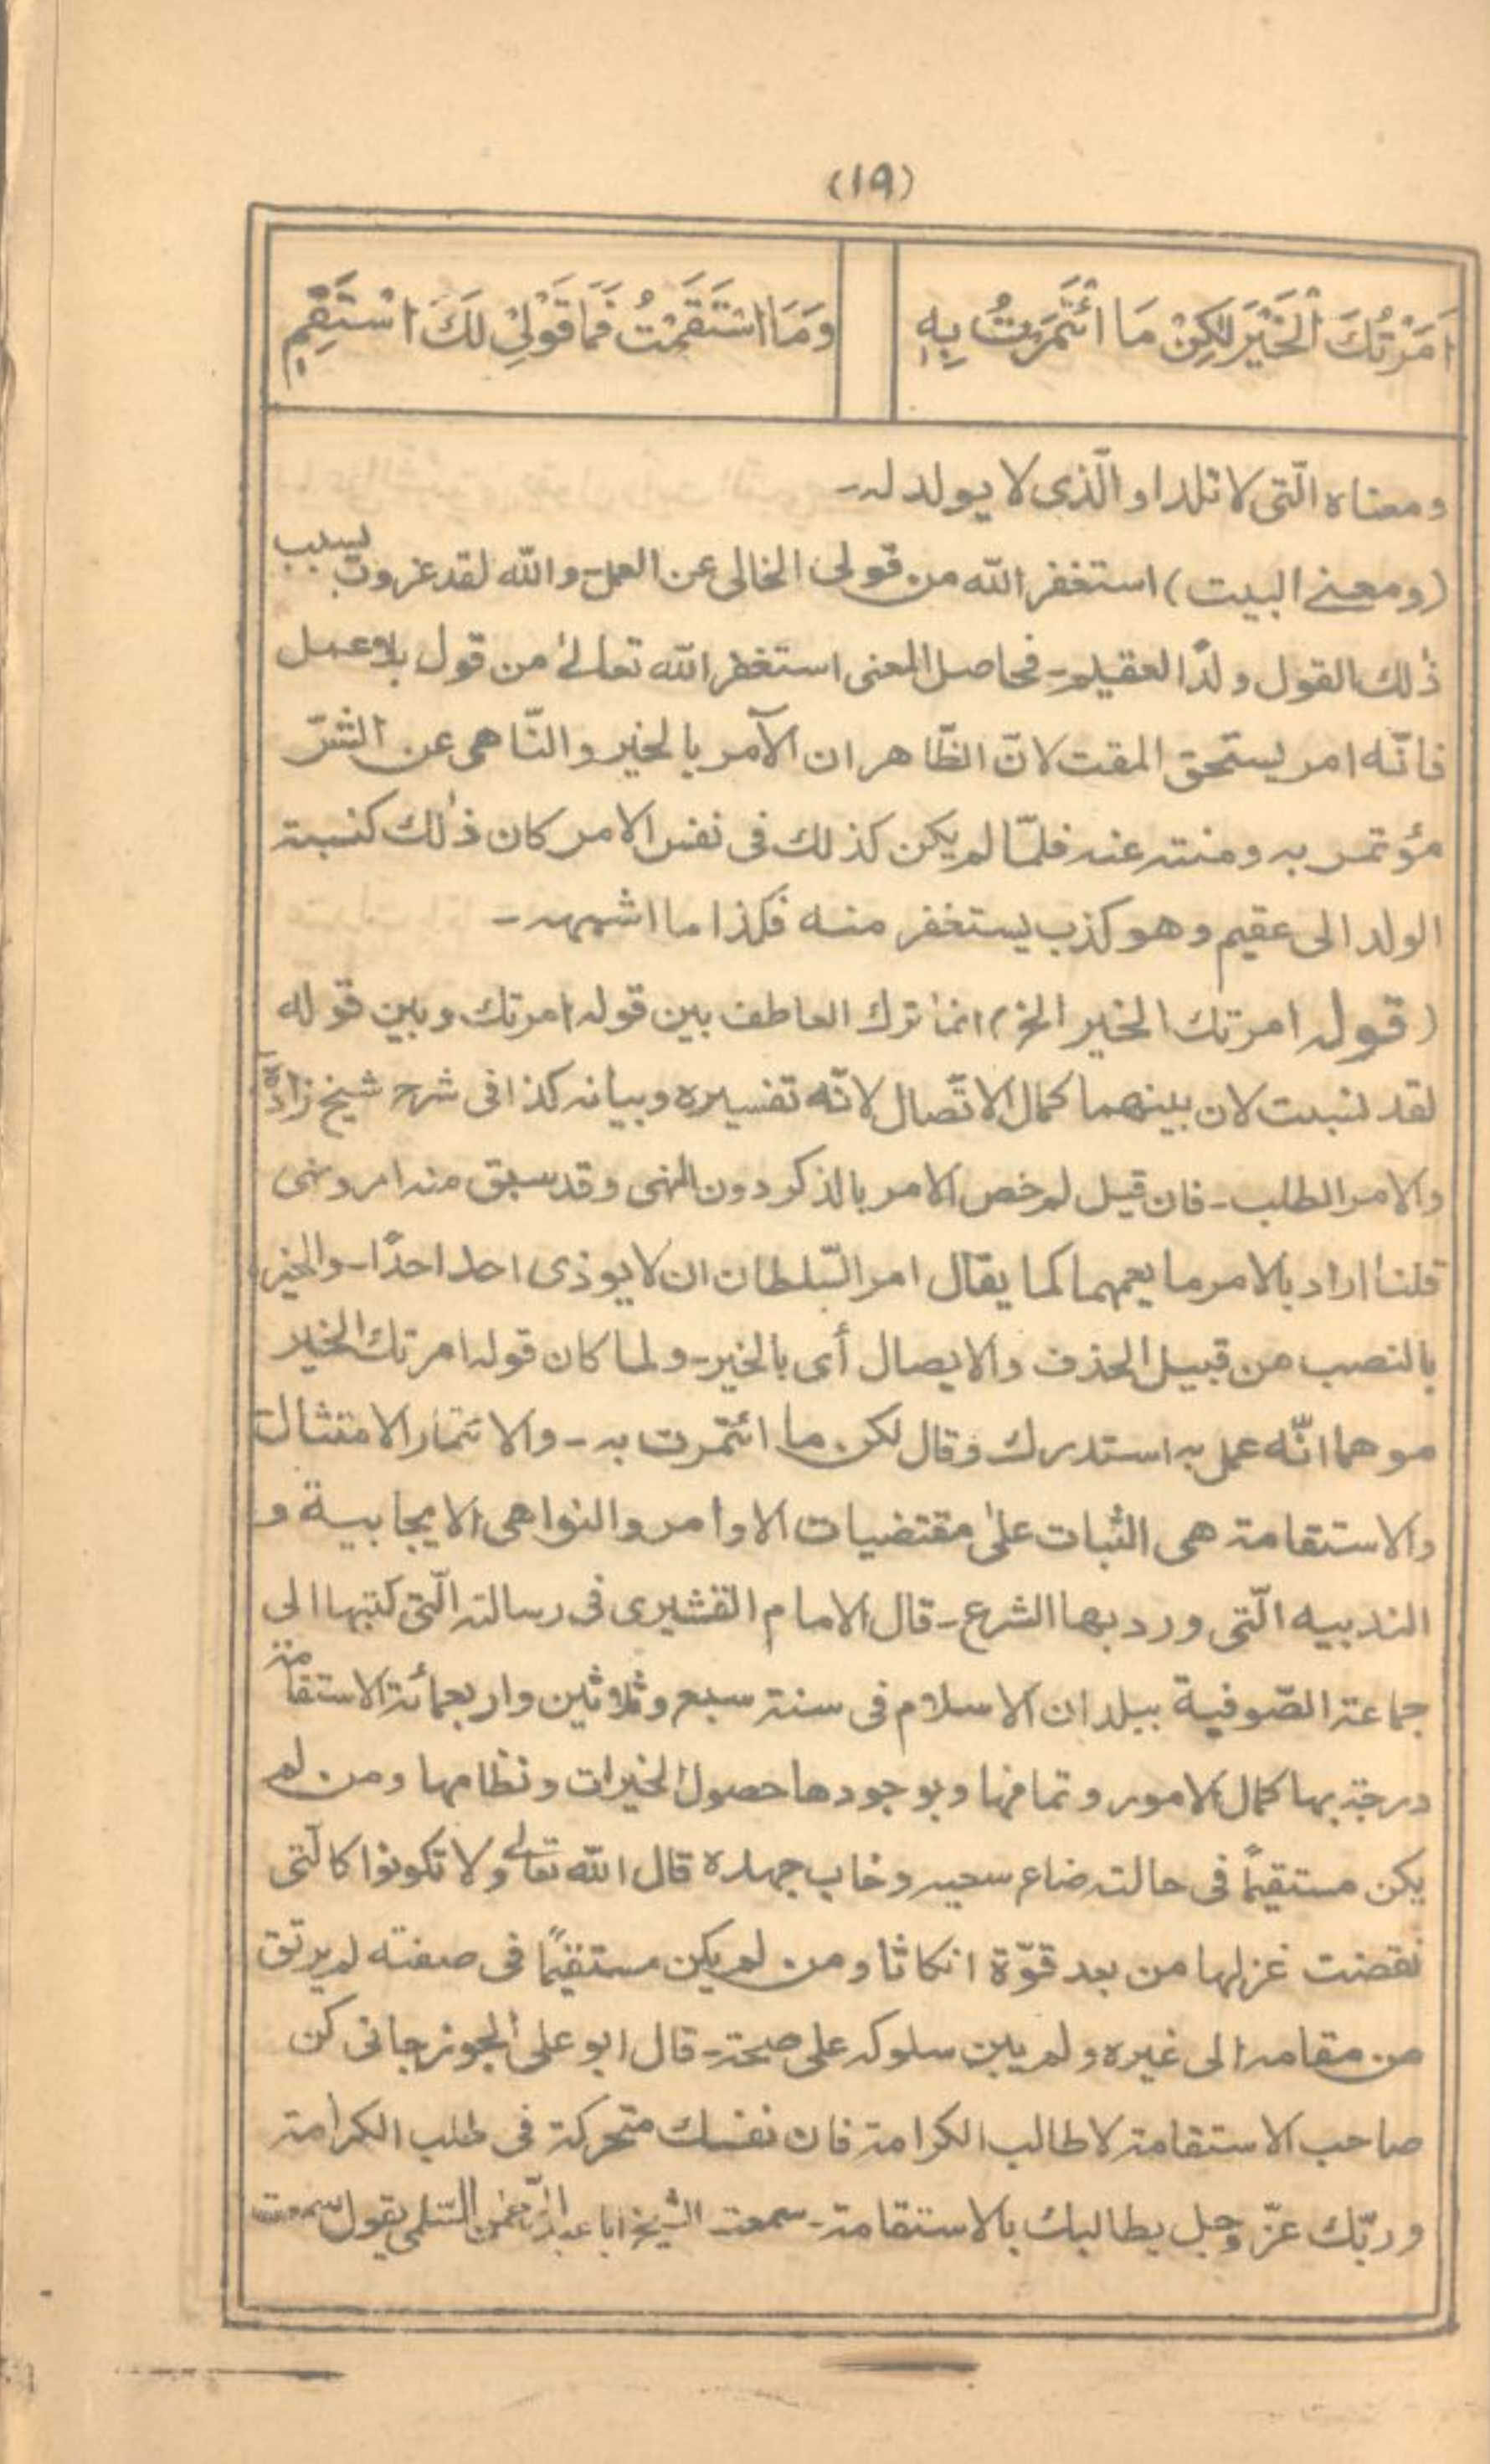 (۱۹)
اَمَرْتُكَ الْخَيْرَ لٰكِنْ مَا ائْتَمَرْتُ بِهٖ
وَمَا اسْتَقَمْتُ فَمَا قَوْلِيْ لَكَ اسْتَقِمٖ
ومعناه الّتى لا تلد او الّذى لا يولد له۔
(ومعنے البيت) استغفر الله من قولى الخالى عن العمل۔ والله لقد عزوت بسبب
ذٰلك القول ولدًا لعقيم۔ فحاصل المعنى استغفر الله تعالىٰ من قول بلا عمل
فانّه امر يستحق المقت لانّ الظّاهر ان الآمر بالخير والنّاهى عن الشرّ
مؤتمر به ومنته عنه فلمّا لم يكن كذلك فى نفس الامر كان ذٰلك كنسبة
الولد الى عقيم وهو كذب يستغفر منه فكذا ما اشبهه۔
(قوله امرتك الخير الخ) انما ترك العاطف بين قوله امرتك وبين قوله
لقد نسبت لان بينهما كمال الاتّصال لانّه تفسيره وبيانه كذا فى شرح شيخ زادہؒ
والامر الطلب۔ فان قيل لم خص الامر بالذكر دون النهى وقد سبق منه امر ونهى
قلنا اراد بالامر ما يعمهما كما يقال امر السّلطان ان لا يوذى احد احدًا۔ والخير
بالنصب من قبيل الحذف والايصال أى بالخير۔ ولما كان قوله امرتك الخير
موهما انّه عمل به استدرك وقال لكن ما ائتمرت به۔ والائتمار الامتثال
والاستقامة هى الثبات علىٰ مقتضيات الاوامر والنواهى الايجابية و
الندبيه الّتى ورد بها الشرع۔ قال الامام القشيرى فى رسالته الّتى كتبها الى
جماعة الصّوفية ببلدان الاسلام فى سنة سبع وثلاثين واربعمائة الاستقامة
درجة بها كمال الامور وتمامها وبوجودها حصول الخيرات ونظامها ومن لم
يكن مستقيمًا فى حالته ضاع سعيه وخاب جهده قال الله تعالےٰ ولا تكونوا كالّتى
نقضت غزلها من بعد قوّة انكاثا ومن لم يكن مستقيمًا فى صفته لم يرتق
من مقامه الى غيره ولم يبن سلوكه على صحة۔ قال ابو على الجوزجانى كن
صاحب الاستقامة لا طالب الكرامة فان نفسك متحركة فى طلب الكرامة
وربّك عزّ وجل يطالبك بالاستقامة۔ سمعت الشيخ ابا عبد الرّحمٰن السّلمى يقول سمعت